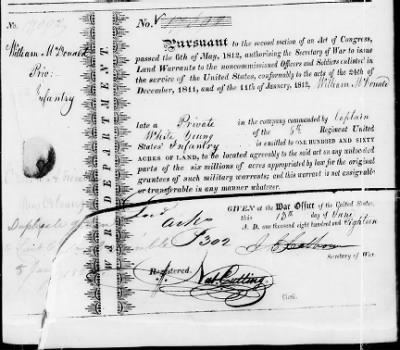 William McDonald
Priv:
Infantry
WAR DEPARTMENT.
No.
Pursuant to the second section of an Act of Congress,
passed the 6th of May, 1812, authorising the Secretary of War to issue
Land Warrants to the noncommissioned Officers and Soldiers enlisted in
the service of the United States, conformably to the acts of the 24th of
December, 1811, and of the 11th of January, 1812, William McDonald
late a Private in the company commanded by Captain
White Young of the 8th Regiment United
States' Infantry
is entitled to ONE HUNDRED AND SIXTY
ACRES OF LAND, to be located agreeably to the said act on any unlocated
parts of the six millions of acres appropriated by law for the original
grantees of such military warrants; and this warrant is not assignable
or transferable in any manner whatever.
GIVEN at the War Office of the United States,
this 15th day of June
A. D. one thousand eight hundred and Eighteen
J C Calhoun
Secretary of War
Duplicate
Arks
302
Registered.
Nat. Cutting
Clerk.